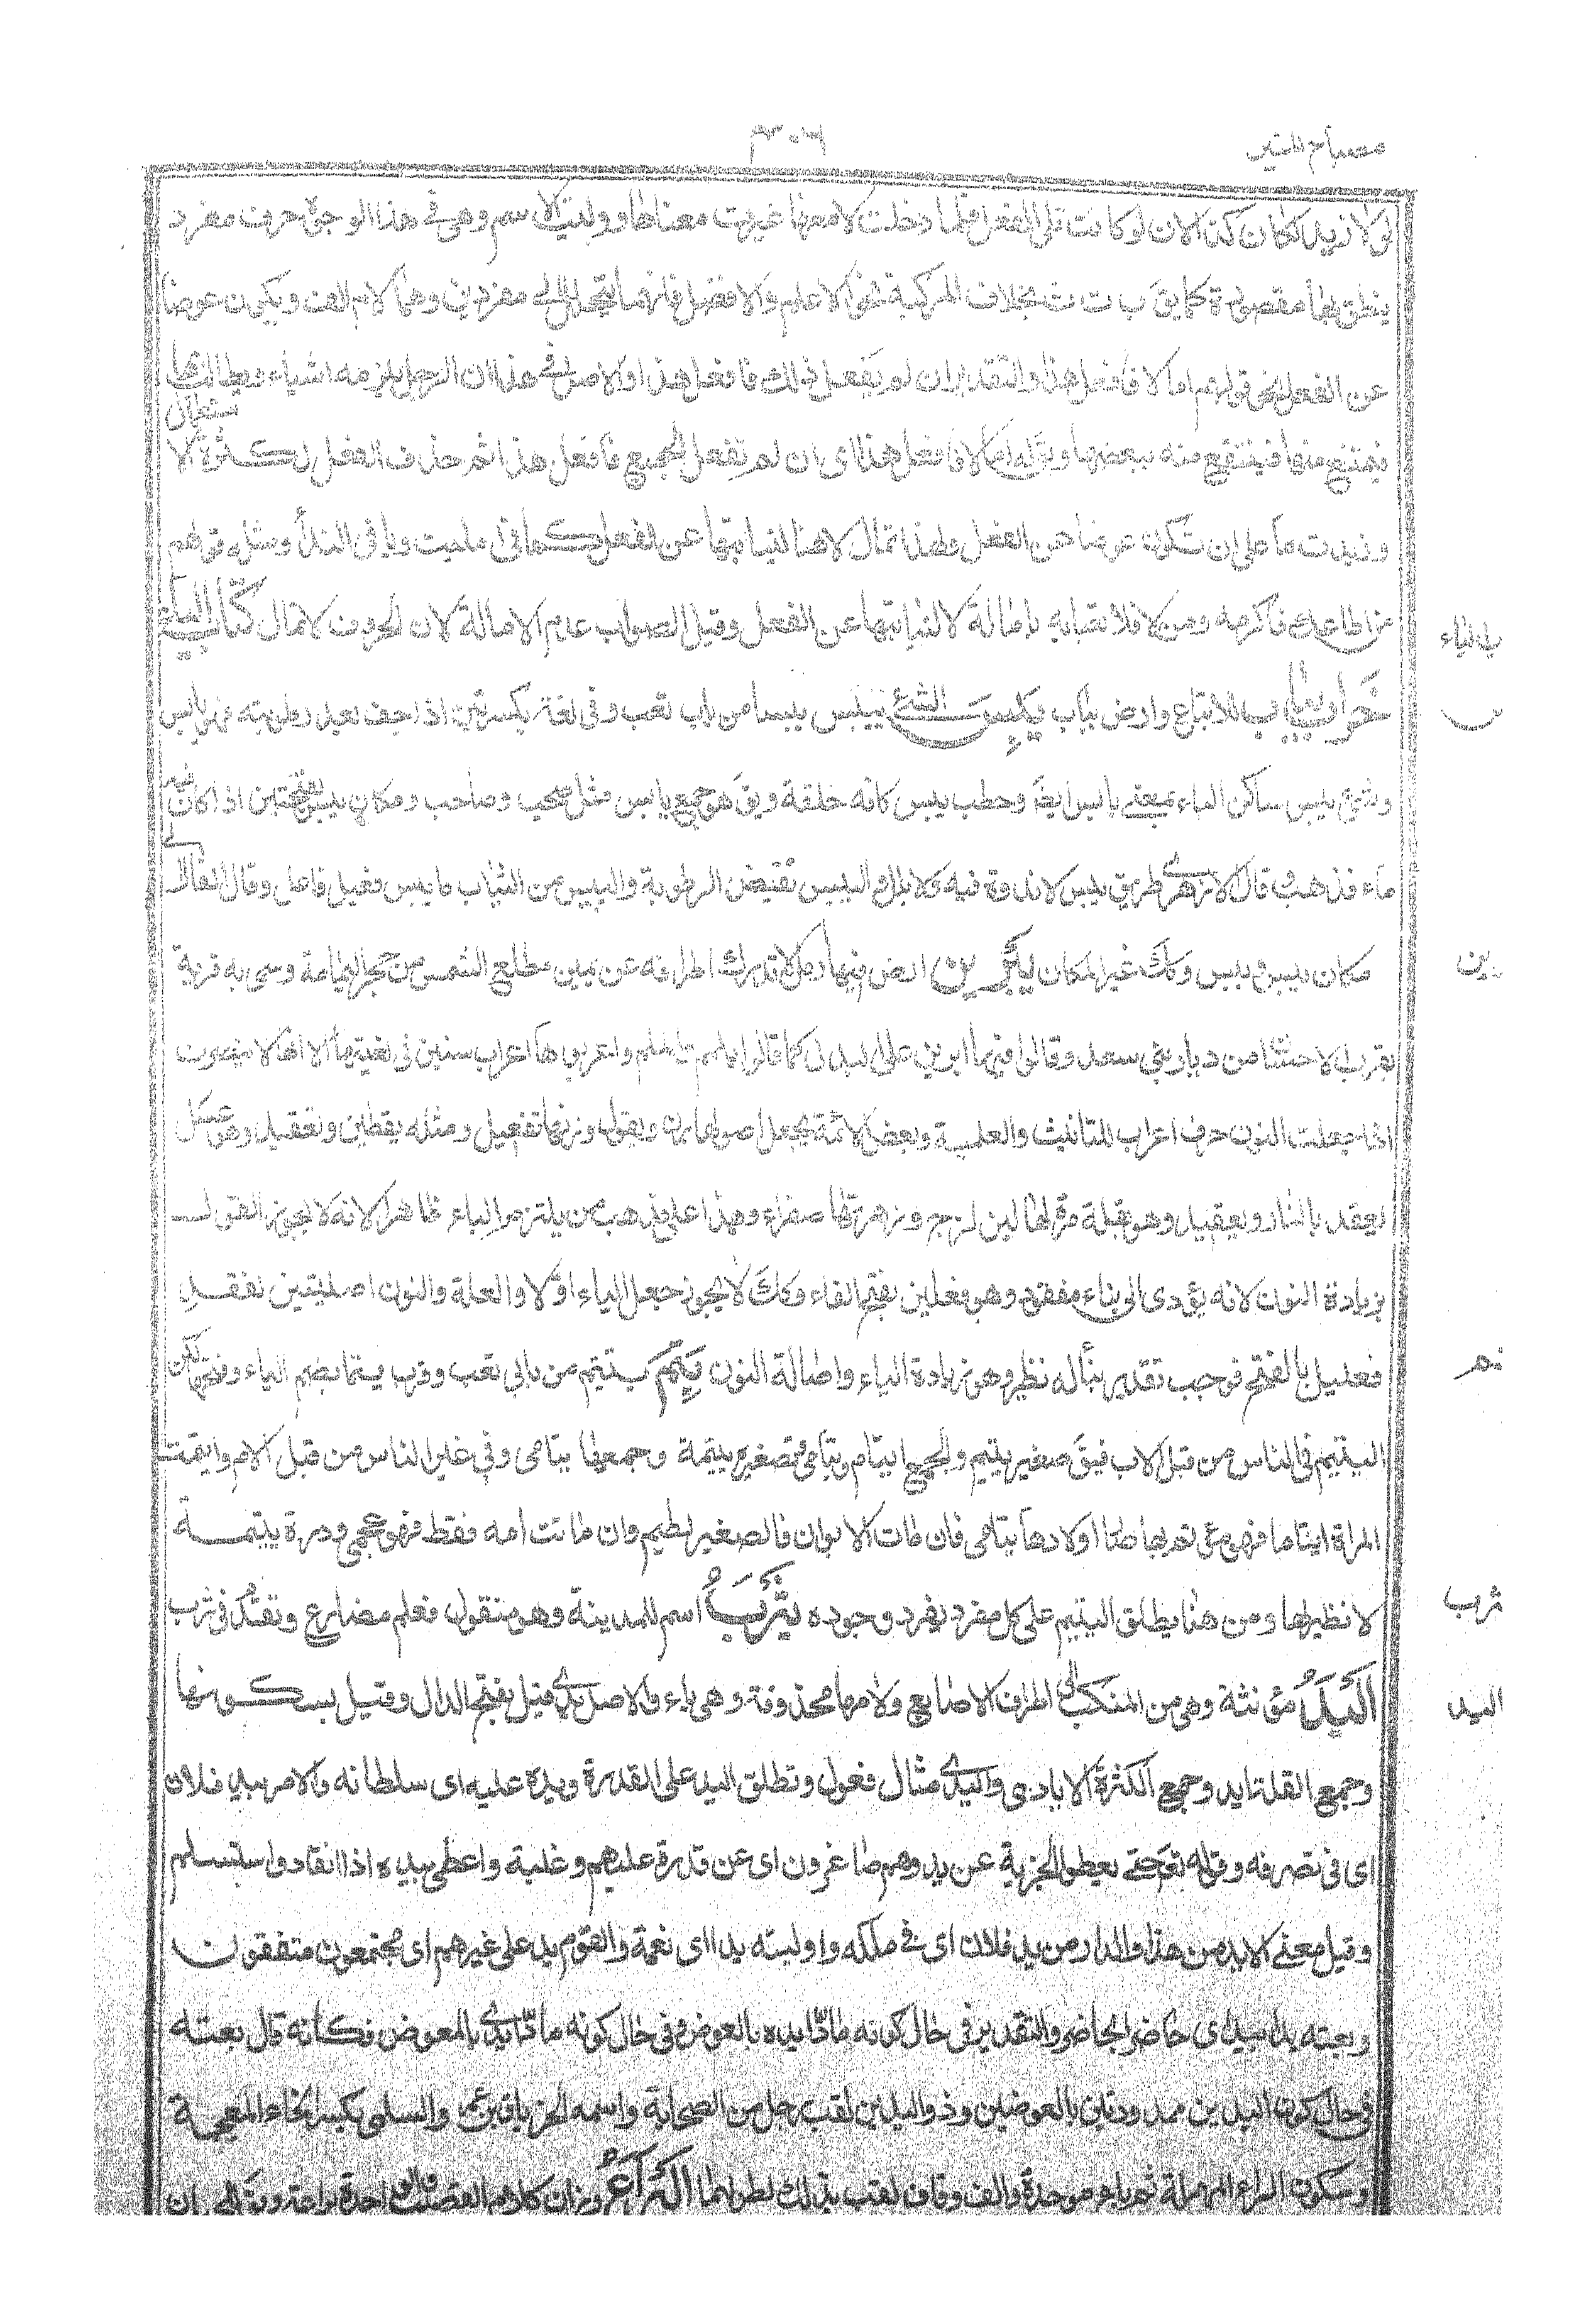 مصباح المنير
٣٠٦
لولا زيد لكان كذا لان لو كانت تلى الفعل فلما دخلت لا معها غيرت معناها ووليت الاسم وهى فى هذا الوجه حرف مفرد
ينطق بها مقصورة كما يق ب ت ث بخلاف المركبة نحو الاعلم والافضل فانهما يتحلل الى مفردين وهما لام الف ويكون عوضا
عن الفعل نحو قولهم اما لا فافعل هذا والتقدير ان لم يفعل ذلك فافعل هذا والاصل فى هذا ان الرجل يلزمه اشياء ويطالب بها
فيمتنع منها فيقنع منه ببعضها ويق له اما لا فافعل هذا اى ان لم تفعل الجميع فافعل هذا ثم حذف الفعل لكثرة الا
ستعمال
وزيدت ما على ان تكون عوضا عن الفعل ولهذا تمال لا هنا لنيابتها عن الفعل كما فى املت وبلى ويا فى النداء ومثله قولهم
من اطاعك فاكرمه ومن لا فلا تعبأ به بامالة لا لنيابتها عن الفعل وقيل الصواب عدم الامالة لان الحروف لا تمال كتاب الياء
خراب يباب للاتباع وارض يباب يبس الشئ ييبس يبسا من باب تعب وفى لغة بكسرتين اذا جف بعد رطوبته فهو يابس
وشئ يبس ساكن الباء بمعنى يابس ايضا وحطب يبس كانه خلقة ويق هو جمع يابس مثل صحب وصاحب ومكان يبس بفتحتين اذا كان فيه
ماء فذهب قال الازهرى طريق يبس لا ندوة فيه ولا بلل واليبس نقيض الرطوبة واليبيس من النبات ما يبس فعيل فاعل وقال الفارابى
مكان يبس ويبس وكك غير المكان يبرين ارض فيها رمل لا تدرك اطرافه عن يمين مطلع الشمس من حجر اليمامة وسمى به قرية
بقرب الاحساء من ديار بنى سعد وقالوا فيها ابرين على البدل كما قالوا يلملم والملم واعربوها اعراب سنين فى لغتيها الا انها لا تنصرف
انما جعلت النون حرف اعراب للتانيث والعلمية وبعض الائمة يجعل اصولها برن ويقول وزنها تفعيل ومثله يقطين ويعقيد وهو عسل
يعقد بالنار ويعقيد وهو بقلة مرة لها لبن لزج وزهرتها صفراء وهذا على مذهب من يلتزم الياء ظاهرا لانه لا يجوز القول
بزيادة النون لانه يؤدى الى بناء مفقود وهو فعلين بفتح الفاء وكك لا يجوز جعل الياء اولا والعلة والنون اصليتين لفقد
فعليل بالفتح فوجب تقدير بناء له نظير وهو زيادة الياء واصالة النون يتم ييتم من بابى تعب وقرب يتما بضم الياء وفتحها لكن
اليتم فى الناس من قبل الاب فيق صغير يتيم والجمع ايتام ويتامى وصغيرة يتيمة وجمعها يتامى وفى غير الناس من قبل الام وايتمت
المراة ايتاما فهى موتم بها صار اولادها يتامى فان مات الابوان فالصغير لطيم وان ماتت امه فقط فهو عجى ودرة يتيمة
لا نظير لها ومن هنا يطلق اليتيم على كل مفرد يفرد وجوده يثرب اسم للمدينة وهو منقول فعلم مضارع وتقدم فى ثرب
اليد مؤنثة وهى من المنكب الى اطراف الاصابع ولامها محذوفة وهى ياء والاصل يدى قيل بفتح الدال وقيل بسكونها
وجمع القلة ايد وجمع الكثرة الايادى واليدى مثال فعول وتطلق اليد على القدرة ويده عليه اى سلطانه والامر بيد فلان
اى فى تصرفه وقوله تع حتى يعطوا الجزية عن يد وهم صاغرون اى عن قدرة عليهم وغلبة واعطى بيده اذا انقاد واستسلم
وقيل معنى الاية من هذا والدار من يد فلان اى فى ملكه واوليته يدا اى نعمة والقوم يد على غيرهم اى مجتمعون متفقون
وبعته يدا بيد اى حاضرا بحاضر والتقدير فى حال كونه مادا يده بالعوض وفى حال كونه مادا يدى بالمعوض فكانه قال بعته
فى حال كون اليدين ممدودتين بالعوضين وذو اليدين لقب رجل من الصحابة واسمه الخرباق بن عمرو السلمى بكسر الخاء المعجمة
وسكون الراء المهملة ثم باء موحدة والف وقاف لقب بذلك لطولهما اليراع وزان كلام القصب الواحدة يراعة ويق للجبان
باب الياء
يبس
برين
يتم
ثرب
اليد